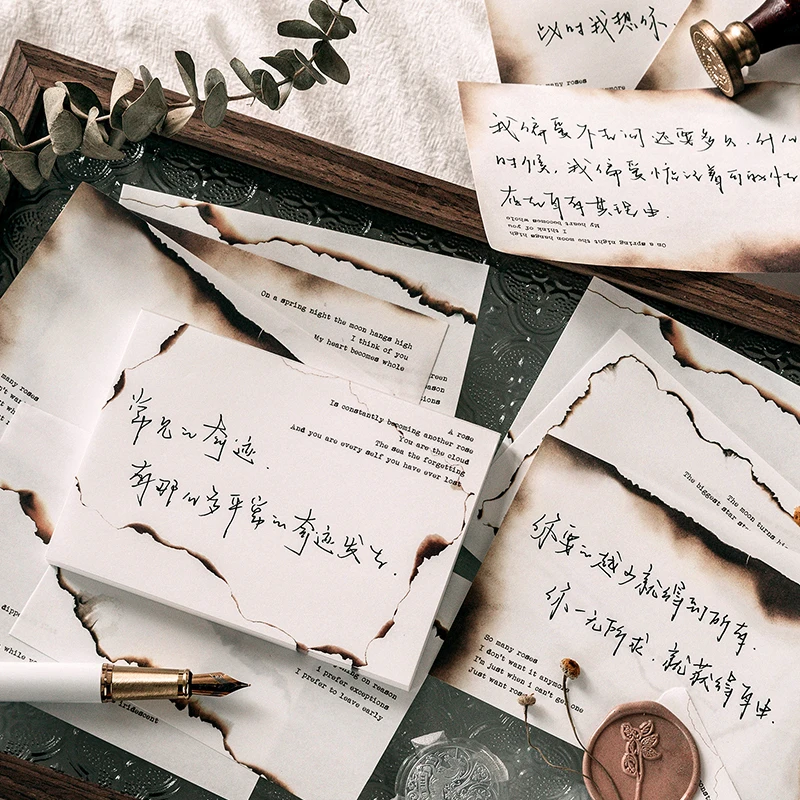 我想你.
many roses
我偏爱不去问还要多久.什么
时候.我偏爱惦记着可能性
存在自有其理由.
On a spring night the moon hangs high
I think of you
My heart becomes whole
On a spring night the moon hangs high
I think of you
My heart becomes whole
many roses
A rose
Is constantly becoming another rose
You are the cloud
The sea the forgetting
And you are every self you have ever lost
常见的奇迹.
有那么多平常的奇迹发生.
The moon turns
The biggest star
你要的越少就得到所有.
你一无所求.就获得自由.
So many roses
I don't want it anymore
I'm just when i can't get one
Just want
on reason
i prefer exceptions
I prefer to leave early
iridescent